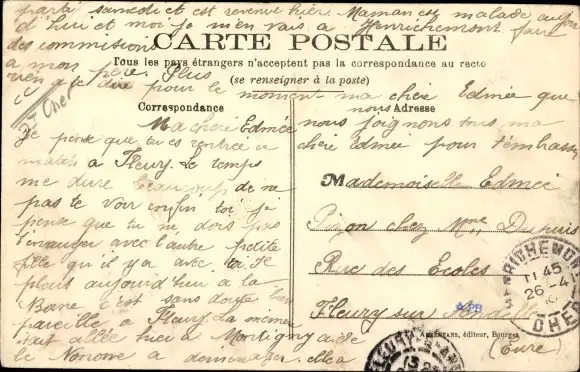 parti samedi et est revenue hier. Maman est malade aujour
d'hui et moi je m'en vais à Henrichemont faire
des commissions
CARTE POSTALE
Tous les pays étrangers n'acceptent pas la correspondance au recto
(se renseigner à la poste)
à mon père. Plus
rien à te dire pour le moment ma chère Edmée que
Cher
Correspondance
nous Adresse
nous joignons tous ma
chère Edmée pour t'embrasser
Ma chère Edmée
Je pense que tu es rentrée ce
matin à Fleury. Le temps
me dure beaucoup de ne
pas te voir enfin toi je
pense que tu ne dois pas
t'ennuyer avec l'autre petite
fille qu'il y a avec toi. Je
pleut aujourd'hui à la
Borne c'est sans doute bien
pareille à Fleury. La mémé
était allée hier à Mortigny aide
le Nonore a démenager elle a
Mademoiselle Edmée
Pion chez Mme Dupuis
Rue des Ecoles
Fleury sur Andelle
(Eure)
HENRICHEMONT
11 45
26 -4
CHER
AUXENFANS, éditeur, Bourges
FLEURY-S-AND
13